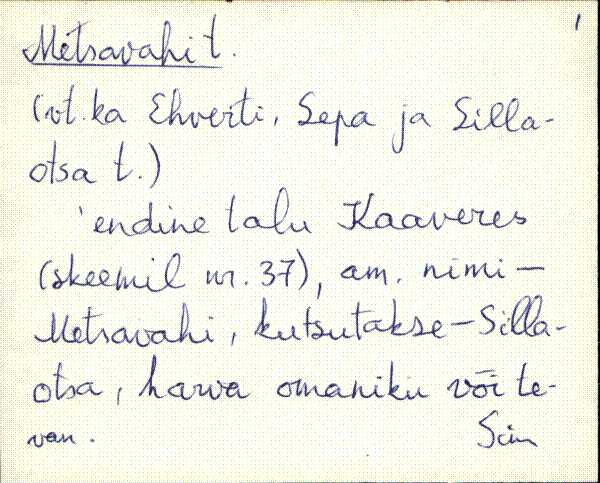 1
Metsavahi t.
(vt. ka Ehverti, Sepa ja Silla-
otsa t.)
'endine talu Kaaveres
(skeemil nr. 37), am. nimi –
Metsavahi, kutsutakse – Silla-
otsa, harva omaniku või te-
van.